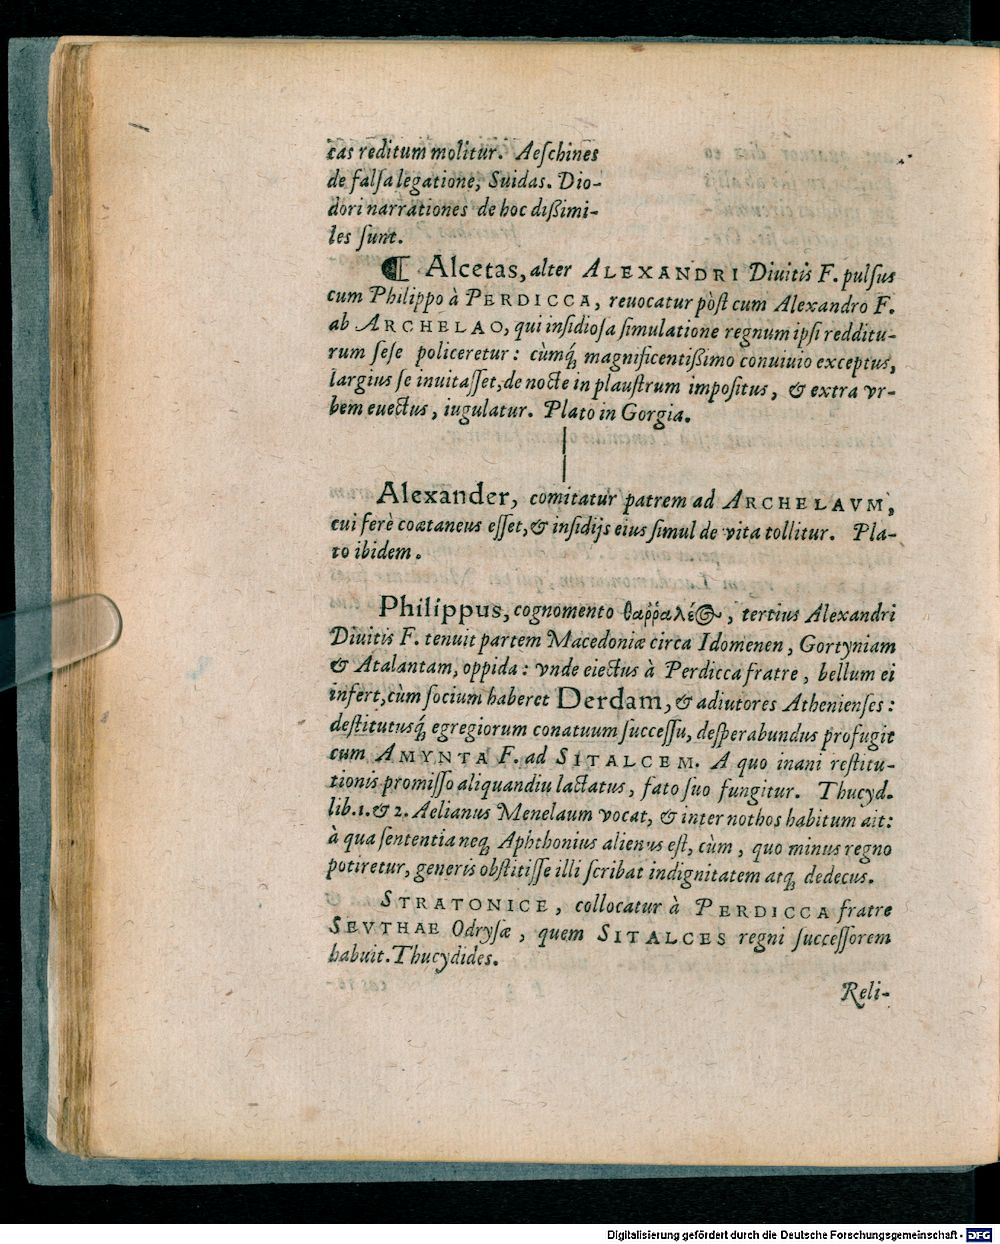 cas reditum molitur. Aeſchines
de falſa legatione, Suidas. Dio-
dori narrationes de hoc diſſimi-
les ſunt.
Alcetas, alter ALEXANDRI Diuitis F. pulſus
cum Philippo à PERDICCA, reuocatur pòſt cum Alexandro F.
ab ARCHELAO, qui inſidioſa ſimulatione regnum ipſi redditu-
rum ſeſe policeretur: cùmq́ꝫ magnificentiſſimo conuiuio exceptus,
largius ſe inuitaſſet, de nocte in plauſtrum impoſitus, & extra vr-
bem euectus, iugulatur. Plato in Gorgia.
Alexander, comitatur patrem ad ARCHELAVM,
cui ferè coætaneus eſſet, & inſidijs eius ſimul de vita tollitur. Pla-
to ibidem.
Philippus, cognomento θαῤῥαλέος, tertius Alexandri
Diuitis F. tenuit partem Macedoniæ circa Idomenen, Gortyniam
& Atalantam, oppida: vnde eiectus à Perdicca fratre, bellum ei
infert, cùm ſocium haberet Derdam, & adiutores Athenienſes:
deſtitutusq́ꝫ egregiorum conatuum ſucceſſu, deſperabundus profugit
cum AMYNTA F. ad SITALCEM. A quo inani reſtitu-
tionis promiſſo aliquandiu lactatus, fato ſuo fungitur. Thucyd.
lib. 1. & 2. Aelianus Menelaum vocat, & inter nothos habitum ait:
à qua ſententia neqꝫ Aphthonius alienus eſt, cùm, quo minus regno
potiretur, generis obſtitiſſe illi ſcribat indignitatem atqꝫ dedecus.
STRATONICE, collocatur à PERDICCA fratre
SEVTHAE Odryſæ, quem SITALCES regni ſucceſſorem
habuit. Thucydides.
Reli-
Digitalisierung gefördert durch die Deutsche Forschungsgemeinschaft - DFG